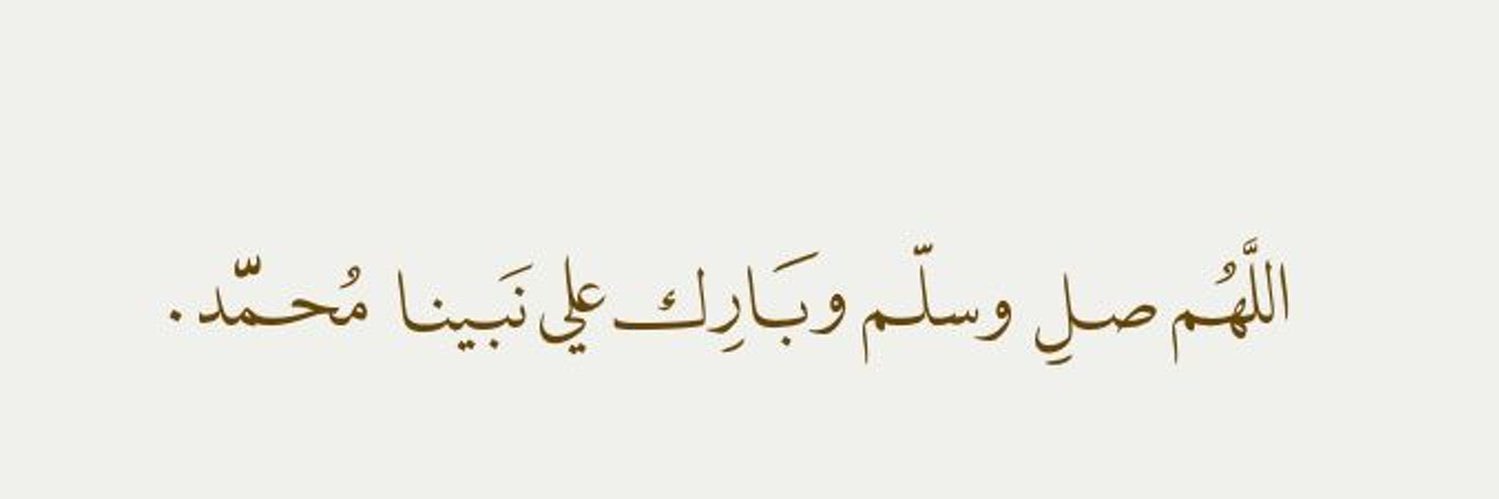 اللَّهُم صلِ وسلّم وبَارِك علي نَبينا مُحمّد.